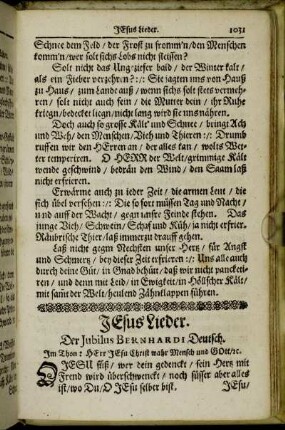 JEsus Lieder. 1031
Schnee dem Feld / der Frost zu fromm'n / den Menschen
komm'n / wer solt sichs Lobs nicht fleissen?
Solt nicht das Ungziefer bald / der Winter kalt /
als ein Fieber verzehren? :/: Sie sagten uns von Hauß
zu Hauß / zum Lande auß / wenn sichs solt stets vermeh-
ren / solt nicht auch sein / die Mutter dein / ihr Ruhe
kriegn / bedeckt liegn / nicht lang wird sie uns nähren.
Doch auch so grosse Kält und Schnee / bringt Ach
und Weh / den Menschen / Vieh und Thieren :/: Drumb
müssen wir den HErren an / der alles kan / wolts Wet-
ter temperiren. O HERR der Welt / grimmige Kält
wende geschwind / bedräu den Wind / den Saam laß
nicht erfrieren.
Erwärme auch zu jeder Zeit / die armen Leut / die
sich übel versehen :/: Die so fort müssen Tag und Nacht /
und auff der Wacht / gegn unsre Feinde stehen. Das
junge Vieh / Schwein / Schaf und Küh / ja nicht erfrier.
Räubrische Thier / laß immer zu drauff gehen.
Laß nicht gegn Nechsten unser Hertz / für Angst
und Schmertz / bey dieser Zeit erfrieren :/: Uns alle auch
durch deine Güt / in Gnad behüt / daß wir nicht pancketi-
ren / und denn mit Leid / in Ewigkeit / in Höllscher Kält
mit samt der Welt / heulend Zähnklappen führen.
JEsus Lieder.
Der Jubilus BERNHARDI Deutsch.
Im Thon: HErr JEsu Christ wahr Mensch und Gott / ec.
O JESU süß / wer dein gedenckt / sein Hertz mit
Freud wird überschwenckt / noch süsser aber alles
ist / wo Du / O JEsu selber bist. JEsu /